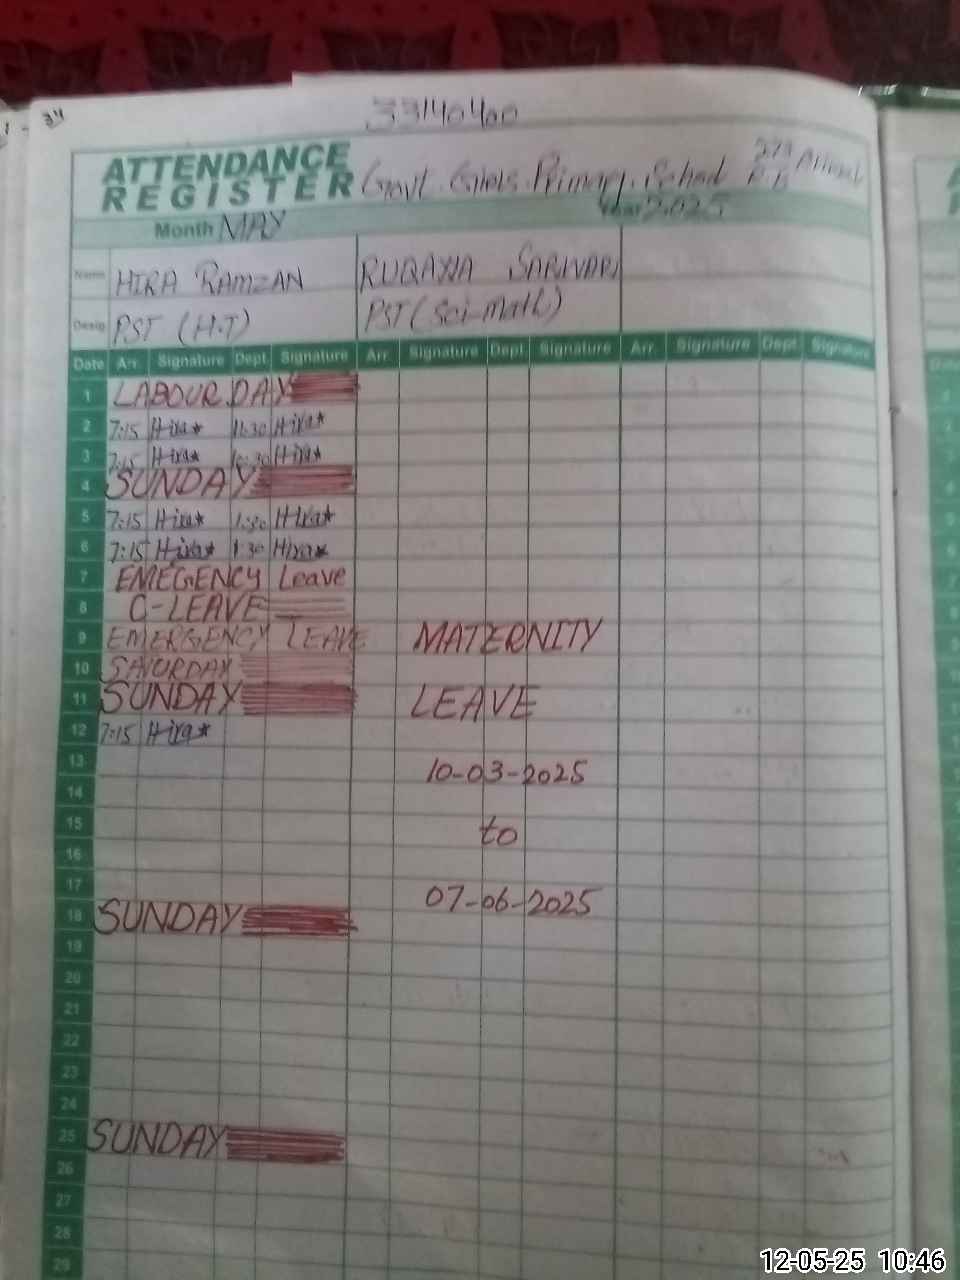 34
33140400
ATTENDANCE REGISTER Govt. Girls. Primary. School
Month MAY Year 2025
Name HIRA RAMZAN RUQAYYA SARWAR
Desig PST (H.T) PST (Sci-Math)
Date Arr. Signature Dept. Signature Arr. Signature Dept. Signature Arr. Signature Dept. Signature
1 LABOUR DAY
2 7:15 Hira 11:30 Hira
3 7:15 Hira Hira
4 SUNDAY
5 7:15 Hira 1:30 Hira
6 7:15 Hira 1:30 Hira
7 EMEGENCY Leave
8 C-LEAVE
9 EMERGENCY LEAVE MATERNITY
10 SATURDAY
11 SUNDAY LEAVE
12 7:15 Hira
13 10-03-2025
14
15 to
16
17 07-06-2025
18 SUNDAY
19
20
21
22
23
24
25 SUNDAY
26
27
28
29
12-05-25 10:46